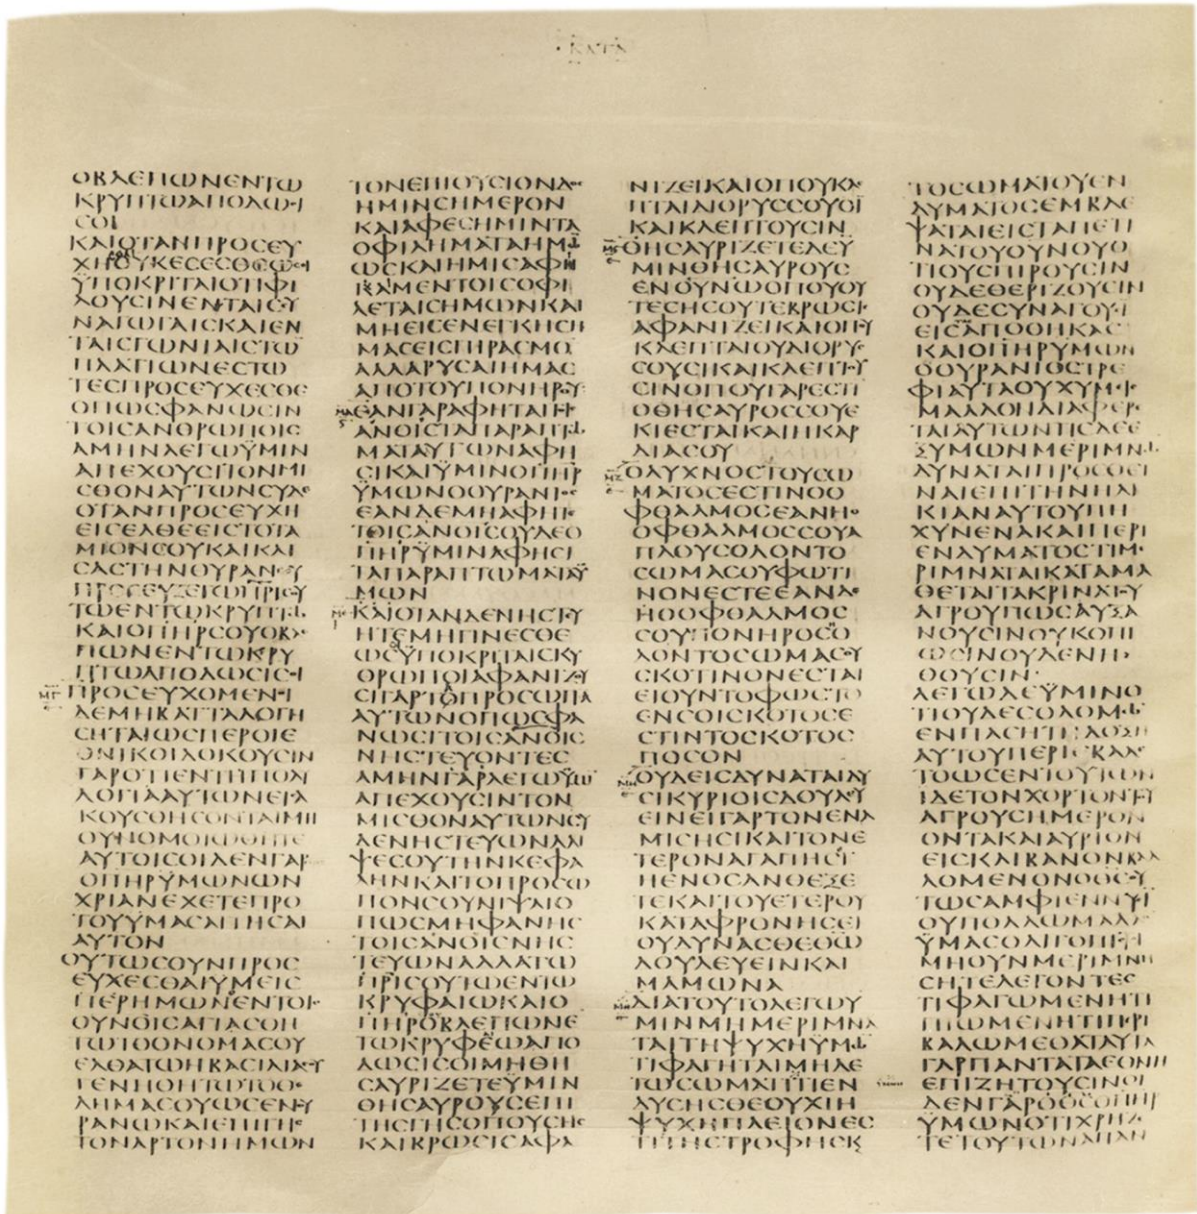 ΚΑΤΑ
ΟΒΛΕΠΩΝΕΝΤΩ
ΚΡΥΠΤΩΑΠΟΔΩϹΙ
ϹΟΙ
ΚΑΙΟΤΑΝΠΡΟϹΕΥ
ΧΗΟΥΚΕϹΕϹΘΕΩϹΟΙ
ΫΠΟΚΡΙΤΑΙΟΤΙΦΙ
ΛΟΥϹΙΝΕΝΤΑΙϹϹΥ
ΝΑΓΩΓΑΙϹΚΑΙΕΝ
ΤΑΙϹΓΩΝΙΑΙϹΤΩ
ΠΛΑΤΙΩΝΕϹΤΩ
ΤΕϹΠΡΟϹΕΥΧΕϹΘΕ
ΟΠΩϹΦΑΝΩϹΙΝ
ΤΟΙϹΑΝΘΡΩΠΟΙϹ
ΑΜΗΝΛΕΓΩΫΜΙΝ
ΑΠΕΧΟΥϹΙΤΟΝΜΙ
ϹΘΟΝΑΥΤΩΝϹΥΔΕ
ΟΤΑΝΠΡΟϹΕΥΧΗ
ΕΙϹΕΛΘΕΕΙϹΤΟΤΑ
ΜΙΟΝϹΟΥΚΑΙΚΛΙ
ϹΑϹΤΗΝΘΥΡΑΝϹΟΥ
ΠΡΟϹΕΥΞΕΤΩΠΡΙϹΟΥ
ΤΩΕΝΤΩΚΡΥΠΤΩ
ΚΑΙΟΠΗΡϹΟΥΟΒΛΕ
ΠΩΝΕΝΤΩΚΡΥ
ΠΤΩΑΠΟΔΩϹΙϹΟΙ
ΠΡΟϹΕΥΧΟΜΕΝΟΙ
ΔΕΜΗΚΑΤΤΑΛΟΓΗ
ϹΗΤΑΙΩϹΠΕΡΟΙΕ
ΘΝΙΚΟΙΔΟΚΟΥϹΙΝ
ΓΑΡΟΤΙΕΝΤΗΠΟΛΥ
ΛΟΓΙΑΑΥΤΩΝΕΙϹΑ
ΚΟΥϹΘΗϹΟΝΤΑΙΜΗ
ΟΥΝΟΜΟΙΩΘΗΤΕ
ΑΥΤΟΙϹΟΙΔΕΝΓΑΡ
ΟΠΗΡΫΜΩΝΩΝ
ΧΡΙΑΝΕΧΕΤΕΠΡΟ
ΤΟΥΥΜΑϹΑΙΤΗϹΑΙ
ΑΥΤΟΝ
ΟΥΤΩϹΟΥΝΠΡΟϹ
ΕΥΧΕϹΘΑΙΫΜΕΙϹ
ΠΕΡΗΜΩΝΕΝΤΟΙϹ
ΟΥΝΟΙϹΑΓΙΑϹΘΗ
ΤΩΤΟΟΝΟΜΑϹΟΥ
ΕΛΘΑΤΩΗΒΑϹΙΛΙΑϹΟΥ
ΓΕΝΗΘΗΤΩΤΟΘΕ
ΛΗΜΑϹΟΥΩϹΕΝΟΥ
ΡΑΝΩΚΑΙΕΠΙΓΗϹ
ΤΟΝΑΡΤΟΝΗΜΩΝ
ΤΟΝΕΠΙΟΥϹΙΟΝΔΟϹ
ΗΜΙΝϹΗΜΕΡΟΝ
ΚΑΙΑΦΕϹΗΜΙΝΤΑ
ΟΦΙΛΗΜΑΤΑΗΜΩ
ΩϹΚΑΙΗΜΙϹΑΦΗ
ΚΑΜΕΝΤΟΙϹΟΦΙ
ΛΕΤΑΙϹΗΜΩΝΚΑΙ
ΜΗΕΙϹΕΝΕΓΚΗϹΗ
ΜΑϹΕΙϹΠΙΡΑϹΜΟ
ΑΛΛΑΡΥϹΑΙΗΜΑϹ
ΑΠΟΤΟΥΠΟΝΗΡΟΥ
ΕΑΝΓΑΡΑΦΗΤΑΙΤΟΙϹ
ΑΝΟΙϹΤΑΠΑΡΑΠΤΩ
ΜΑΤΑΑΥΤΩΝΑΦΗ
ϹΙΚΑΙΫΜΙΝΟΠΗΡ
ΫΜΩΝΟΟΥΡΑΝΙΟϹ
ΕΑΝΔΕΜΗΑΦΗΤΕ
ΤΟΙϹΑΝΟΙϹΟΥΔΕΟ
ΠΗΡΫΜΙΝΑΦΗϹΙ
ΤΑΠΑΡΑΠΤΩΜΑΤΑΫ
ΜΩΝ
ΚΑΙΟΤΑΝΔΕΝΗϹΤΕΥ
ΗΤΕΜΗΓΙΝΕϹΘΕ
ΩϹΫΠΟΚΡΙΤΑΙϹΚΥ
ΘΡΩΠΟΙΑΦΑΝΙΖΟΥ
ϹΙΓΑΡΤΟΠΡΟϹΩΠΑ
ΑΥΤΩΝΟΠΩϹΦΑ
ΝΩϹΙΤΟΙϹΑΝΟΙϹ
ΝΗϹΤΕΥΟΝΤΕϹ
ΑΜΗΝΓΑΡΛΕΓΩΫΜΙ
ΑΠΕΧΟΥϹΙΝΤΟΝ
ΜΙϹΘΟΝΑΥΤΩΝϹΥ
ΔΕΝΗϹΤΕΥΩΝΑΛΙ
ΨΕϹΟΥΤΗΝΚΕΦΑ
ΛΗΝΚΑΙΤΟΠΡΟϹΩ
ΠΟΝϹΟΥΝΙΨΑΙΟ
ΠΩϹΜΗΦΑΝΗϹ
ΤΟΙϹΑΝΟΙϹΝΗϹ
ΤΕΥΩΝΑΛΛΑΤΩ
ΠΡΙϹΟΥΤΩΕΝΤΩ
ΚΡΥΦΑΙΩΚΑΙΟ
ΠΗΡΟΒΛΕΠΩΝΕ
ΤΩΚΡΥΦΕΩΑΠΟ
ΔΩϹΙϹΟΙΜΗΘΗ
ϹΑΥΡΙΖΕΤΕΫΜΙΝ
ΘΗϹΑΥΡΟΥϹΕΠΙ
ΤΗϹΓΗϹΟΠΟΥϹΗϹ
ΚΑΙΒΡΩϹΙϹΑΦΑ
ΝΙΖΕΙΚΑΙΟΠΟΥΚΛΕ
ΠΤΑΙΔΙΟΡΥϹϹΟΥϹΙ
ΚΑΙΚΛΕΠΤΟΥϹΙΝ
ΘΗϹΑΥΡΙΖΕΤΕΔΕΫ
ΜΙΝΘΗϹΑΥΡΟΥϹ
ΕΝΟΥΝΩΟΠΟΥΟΥ
ΤΕϹΗϹΟΥΤΕΒΡΩϹΙϹ
ΑΦΑΝΙΖΕΙΚΑΙΟΠΟΥ
ΚΛΕΠΤΑΙΟΥΔΙΟΡΥϹ
ϹΟΥϹΙΚΑΙΚΛΕΠΤΟΥ
ϹΙΝΟΠΟΥΓΑΡΕϹΤΙ
ΟΘΗϹΑΥΡΟϹϹΟΥΕ
ΚΙΕϹΤΑΙΚΑΙΗΚΑΡ
ΔΙΑϹΟΥ
ΟΛΥΧΝΟϹΤΟΥϹΩ
ΜΑΤΟϹΕϹΤΙΝΟΟ
ΦΘΑΛΜΟϹΕΑΝΗΟ
ΟΦΘΑΛΜΟϹϹΟΥΑ
ΠΛΟΥϹΟΛΟΝΤΟ
ϹΩΜΑϹΟΥΦΩΤΙ
ΝΟΝΕϹΤΕΕΑΝΔΕ
ΗΟΟΦΘΑΛΜΟϹ
ϹΟΥΠΟΝΗΡΟϹΟ
ΛΟΝΤΟϹΩΜΑϹΟΥ
ϹΚΟΤΙΝΟΝΕϹΤΑΙ
ΕΙΟΥΝΤΟΦΩϹΤΟ
ΕΝϹΟΙϹΚΟΤΟϹΕ
ϹΤΙΝΤΟϹΚΟΤΟϹ
ΠΟϹΟΝ
ΟΥΔΕΙϹΔΥΝΑΤΑΙΔΥ
ϹΙΚΥΡΙΟΙϹΔΟΥΛΕΥ
ΕΙΝΕΙΓΑΡΤΟΝΕΝΑ
ΜΙϹΗϹΙΚΑΙΤΟΝΕ
ΤΕΡΟΝΑΓΑΠΗϹΙ
ΗΕΝΟϹΑΝΘΕΞΕ
ΤΕΚΑΙΤΟΥΕΤΕΡΟΥ
ΚΑΤΑΦΡΟΝΗϹΕΙ
ΟΥΔΥΝΑϹΘΕΘΩ
ΔΟΥΛΕΥΕΙΝΚΑΙ
ΜΑΜΩΝΑ
ΔΙΑΤΟΥΤΟΛΕΓΩΥ
ΜΙΝΜΗΜΕΡΙΜΝΑ
ΤΑΙΤΗΨΥΧΗΥΜΩ
ΤΙΦΑΓΗΤΑΙΜΗΔΕ
ΤΩϹΩΜΑΤΙΤΙΕΝ
ΔΥϹΗϹΘΕΟΥΧΙΗ
ΨΥΧΗΠΛΕΙΟΝΕϹ
ΤΙΤΗϹΤΡΟΦΗϹΚ
ΤΟϹΩΜΑΤΟΥΕΝ
ΔΥΜΑΤΟϹΕΜΒΛΕ
ΨΑΤΑΙΕΙϹΤΑΠΕΤΙ
ΝΑΤΟΥΟΥΝΟΥΟ
ΤΙΟΥϹΠΙΡΟΥϹΙΝ
ΟΥΔΕΘΕΡΙΖΟΥϹΙΝ
ΟΥΔΕϹΥΝΑΓΟΥϹΙ
ΕΙϹΑΠΟΘΗΚΑϹ
ΚΑΙΟΠΗΡΥΜΩΝ
ΟΟΥΡΑΝΙΟϹΤΡΕ
ΦΙΑΥΤΑΟΥΧΥΜΕΙϹ
ΜΑΛΛΟΝΔΙΑΦΕΡΕ
ΤΑΙΑΥΤΩΝΤΙϹΔΕΕ
ΞΥΜΩΝΜΕΡΙΜΝΩ
ΔΥΝΑΤΑΙΠΡΟϹΘΙ
ΝΑΙΕΠΙΤΗΝΗΛΙ
ΚΙΑΝΑΥΤΟΥΠΗ
ΧΥΝΕΝΑΚΑΙΠΕΡΙ
ΕΝΔΥΜΑΤΟϹΤΙΜΕ
ΡΙΜΝΑΤΑΙΚΑΤΑΜΑ
ΘΕΤΑΙΤΑΚΡΙΝΑΤΟΥ
ΑΓΡΟΥΠΩϹΑΥΞΑ
ΝΟΥϹΙΝΟΥΚΟΠΙ
ΩϹΙΝΟΥΔΕΝΗ
ΘΟΥϹΙΝ
ΛΕΓΩΔΕΫΜΙΝΟ
ΤΙΟΥΔΕϹΟΛΟΜΩ
ΕΝΠΑϹΗΤΗΔΟΞΗ
ΑΥΤΟΥΠΕΡΙΕΒΑΛΕ
ΤΟΩϹΕΝΤΟΥΤΩΝ
ΙΔΕΤΟΝΧΟΡΤΟΝΤΟΥ
ΑΓΡΟΥϹΗΜΕΡΟΝ
ΟΝΤΑΚΑΙΑΥΡΙΟΝ
ΕΙϹΚΛΙΒΑΝΟΝΒΑΛ
ΛΟΜΕΝΟΝΟΘϹΟΥ
ΤΩϹΑΜΦΙΕΝΝΥϹΙ
ΟΥΠΟΛΛΩΜΑΛΛΟ
ΫΜΑϹΟΛΙΓΟΠΙϹΤΟΙ
ΜΗΟΥΝΜΕΡΙΜΝΗ
ϹΗΤΕΛΕΓΟΝΤΕϹ
ΤΙΦΑΓΩΜΕΝΗΤΙ
ΠΙΩΜΕΝΗΤΙΠΕΡΙ
ΒΑΛΩΜΕΘΑΤΑΥΤΑ
ΓΑΡΠΑΝΤΑΤΑΕΘΝΗ
ΕΠΙΖΗΤΟΥϹΙΝΟΙ
ΔΕΝΓΑΡΟΘϹΟΠΗΡ
ΥΜΩΝΟΤΙΧΡΗΖΕ
ΤΕΤΟΥΤΩΝΑΠΑΝ